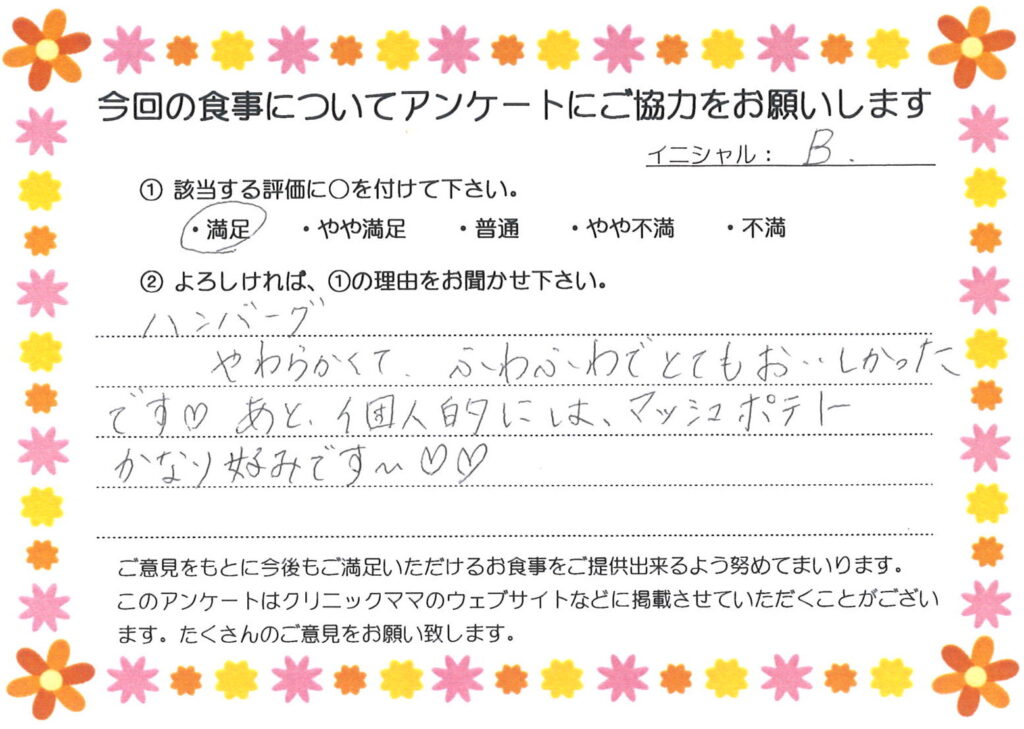 今回の食事についてアンケートにご協力をお願いします
イニシャル： B.
① 該当する評価に○を付けて下さい。
・満足 ・やや満足 ・普通 ・やや不満 ・不満
② よろしければ、①の理由をお聞かせ下さい。
ハンバーグ
やわらかくて、ふわふわでとてもおいしかった
です♡ あと、個人的には、マッシュポテト
かなり好みです〜♡♡
ご意見をもとに今後もご満足いただけるお食事をご提供出来るよう努めてまいります。
このアンケートはクリニックママのウェブサイトなどに掲載させていただくことがござい
ます。たくさんのご意見をお願い致します。